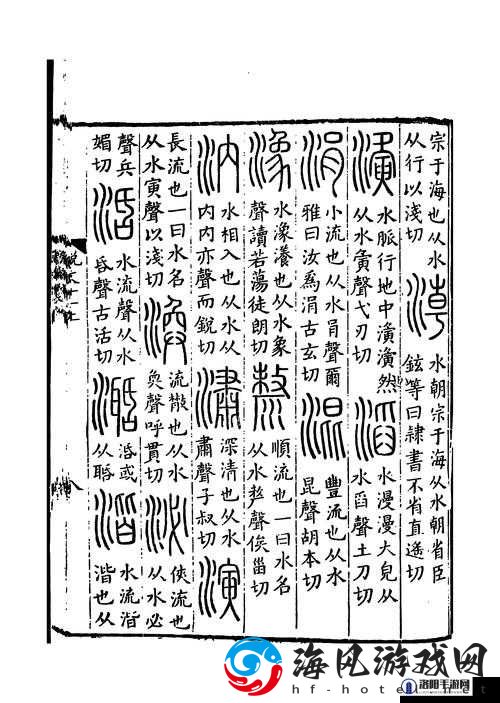 宗于海也从水
从行以淺切
潮
水朝宗于海从水朝省臣
鉉等曰隸書不省直遙切
濥
水脈行地中濥濥然
从水夤聲弋刃切
滔
水漫漫大皃从
水舀聲土刀切
涓
小流也从水肙聲爾
雅曰汝爲涓古玄切
混
豐流也从水
昆聲胡本切
潒
水潒瀁也从水象
聲讀若蕩徒朗切
漦
順流也一曰水名
从水𠩺聲俟甾切
汭
水相入也从水从
内内亦聲而銳切
潚
深清也从水
肅聲子叔切
演
長流也一曰水名
从水寅聲以淺切
渙
流散也从水
奐聲呼貫切
泌
俠流也
从水必
聲兵
媚切
活
水流聲从水
𠯑聲古活切
濊
活或
从聒
湝
水流湝
湝也从
海风游戏网
hf-hotel.net
洛阳手游网